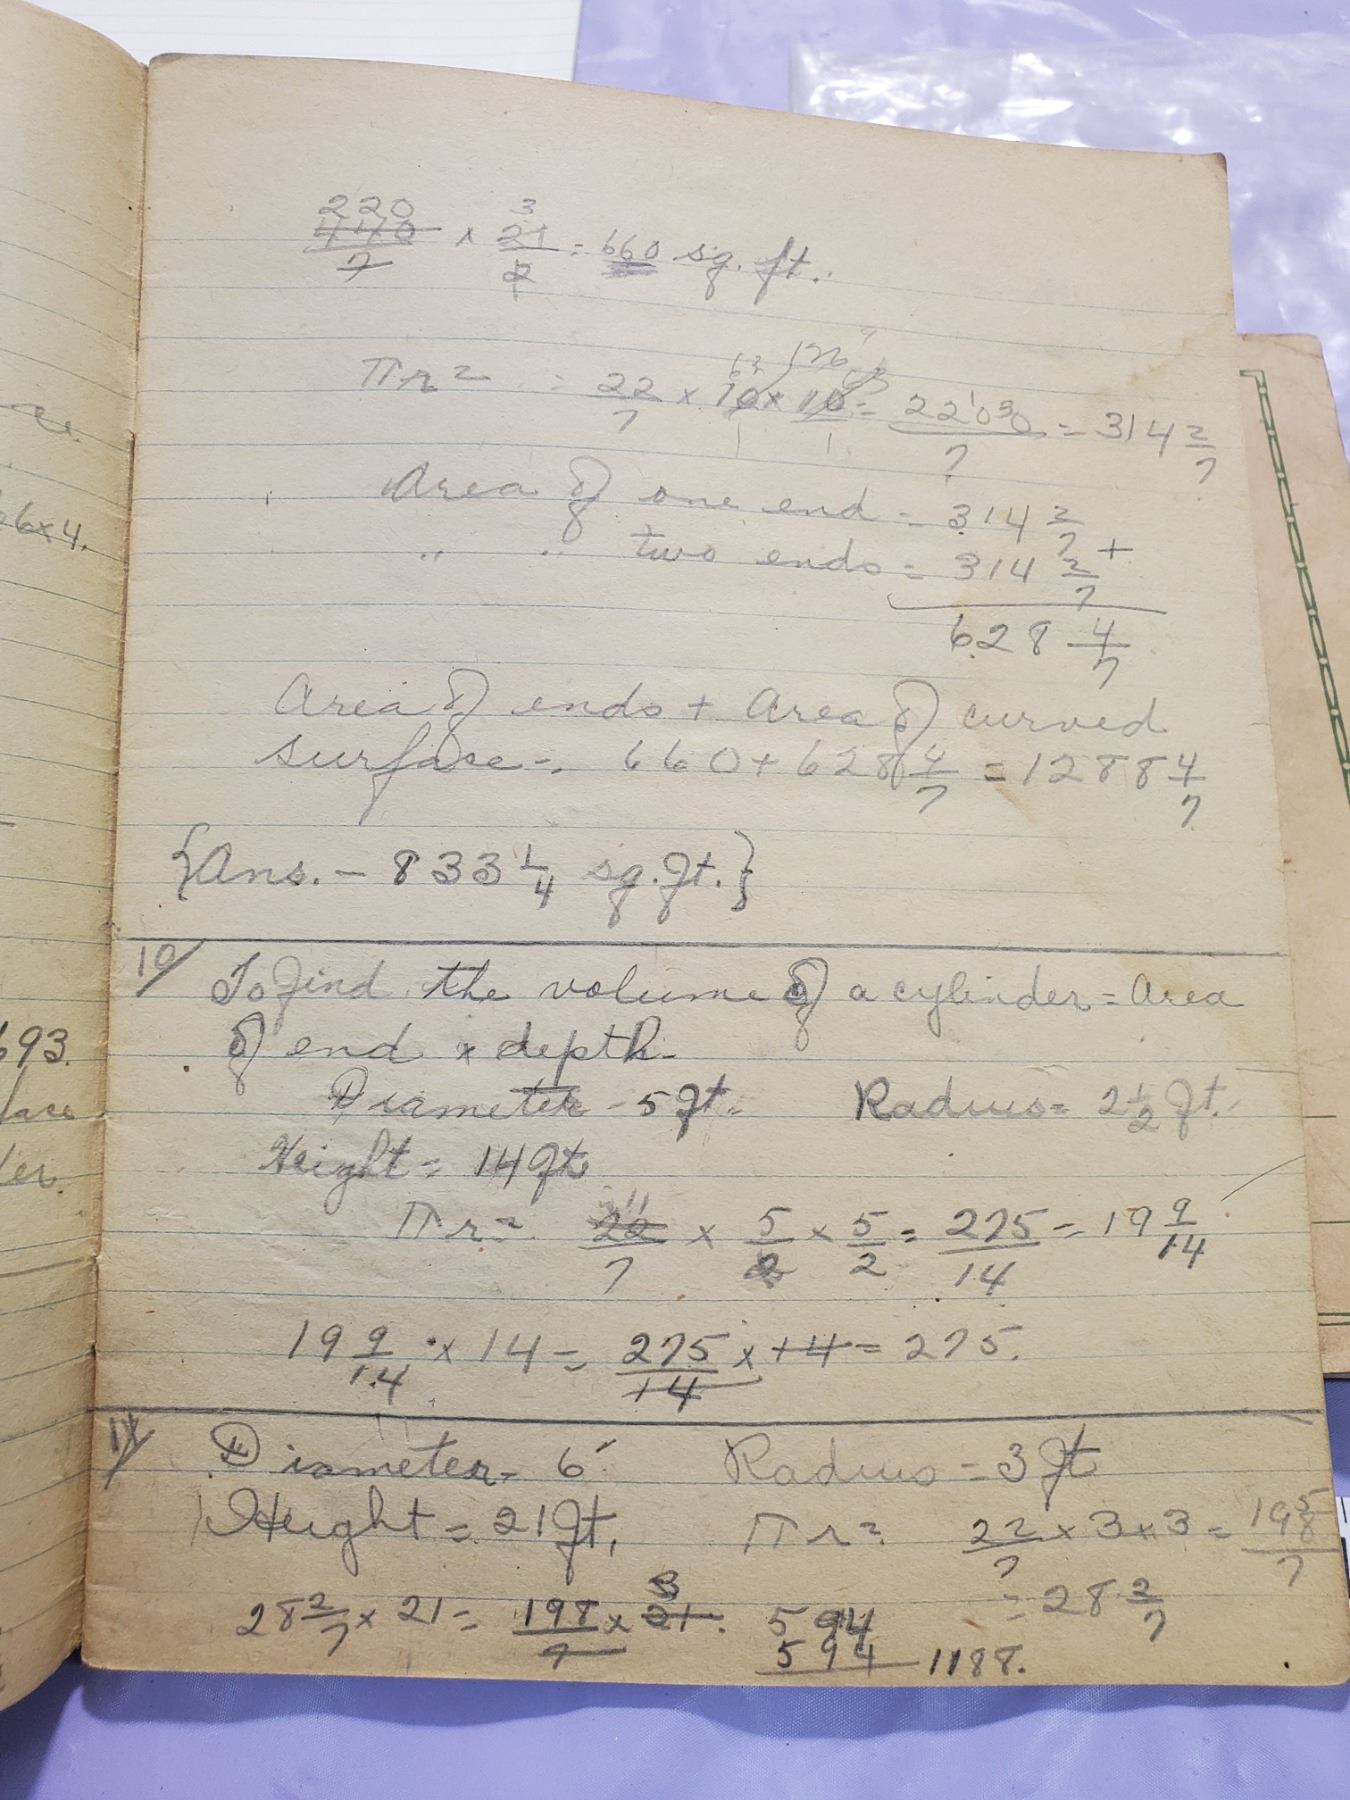 220 3
440/7 × 21/2 = 660 sq. ft.
πr² = 22/7 × 10 × 10 = 2200/7 = 314 2/7
Area of one end = 314 2/7 +
" " two ends = 314 2/7
628 4/7
Area of ends + Area of curved
surface = 660 + 628 4/7 = 1288 4/7
{Ans. - 833 1/4 sq. ft.}
10/ To find the volume of a cylinder = area
of end × depth.
Diameter - 5 ft. Radius = 2 1/2 ft.
Height = 14 ft
11
πr² 22/7 × 5/2 × 5/2 = 275/14 = 19 9/14
19 9/14 × 14 = 275/14 × 14 = 275.
11/ Diameter = 6' Radius = 3 ft
Height = 21 ft. πr² 22/7 × 3 × 3 = 198/7
= 28 2/7
3
28 2/7 × 21 = 198/7 × 21. 594
594 1188.
6×4.
693.